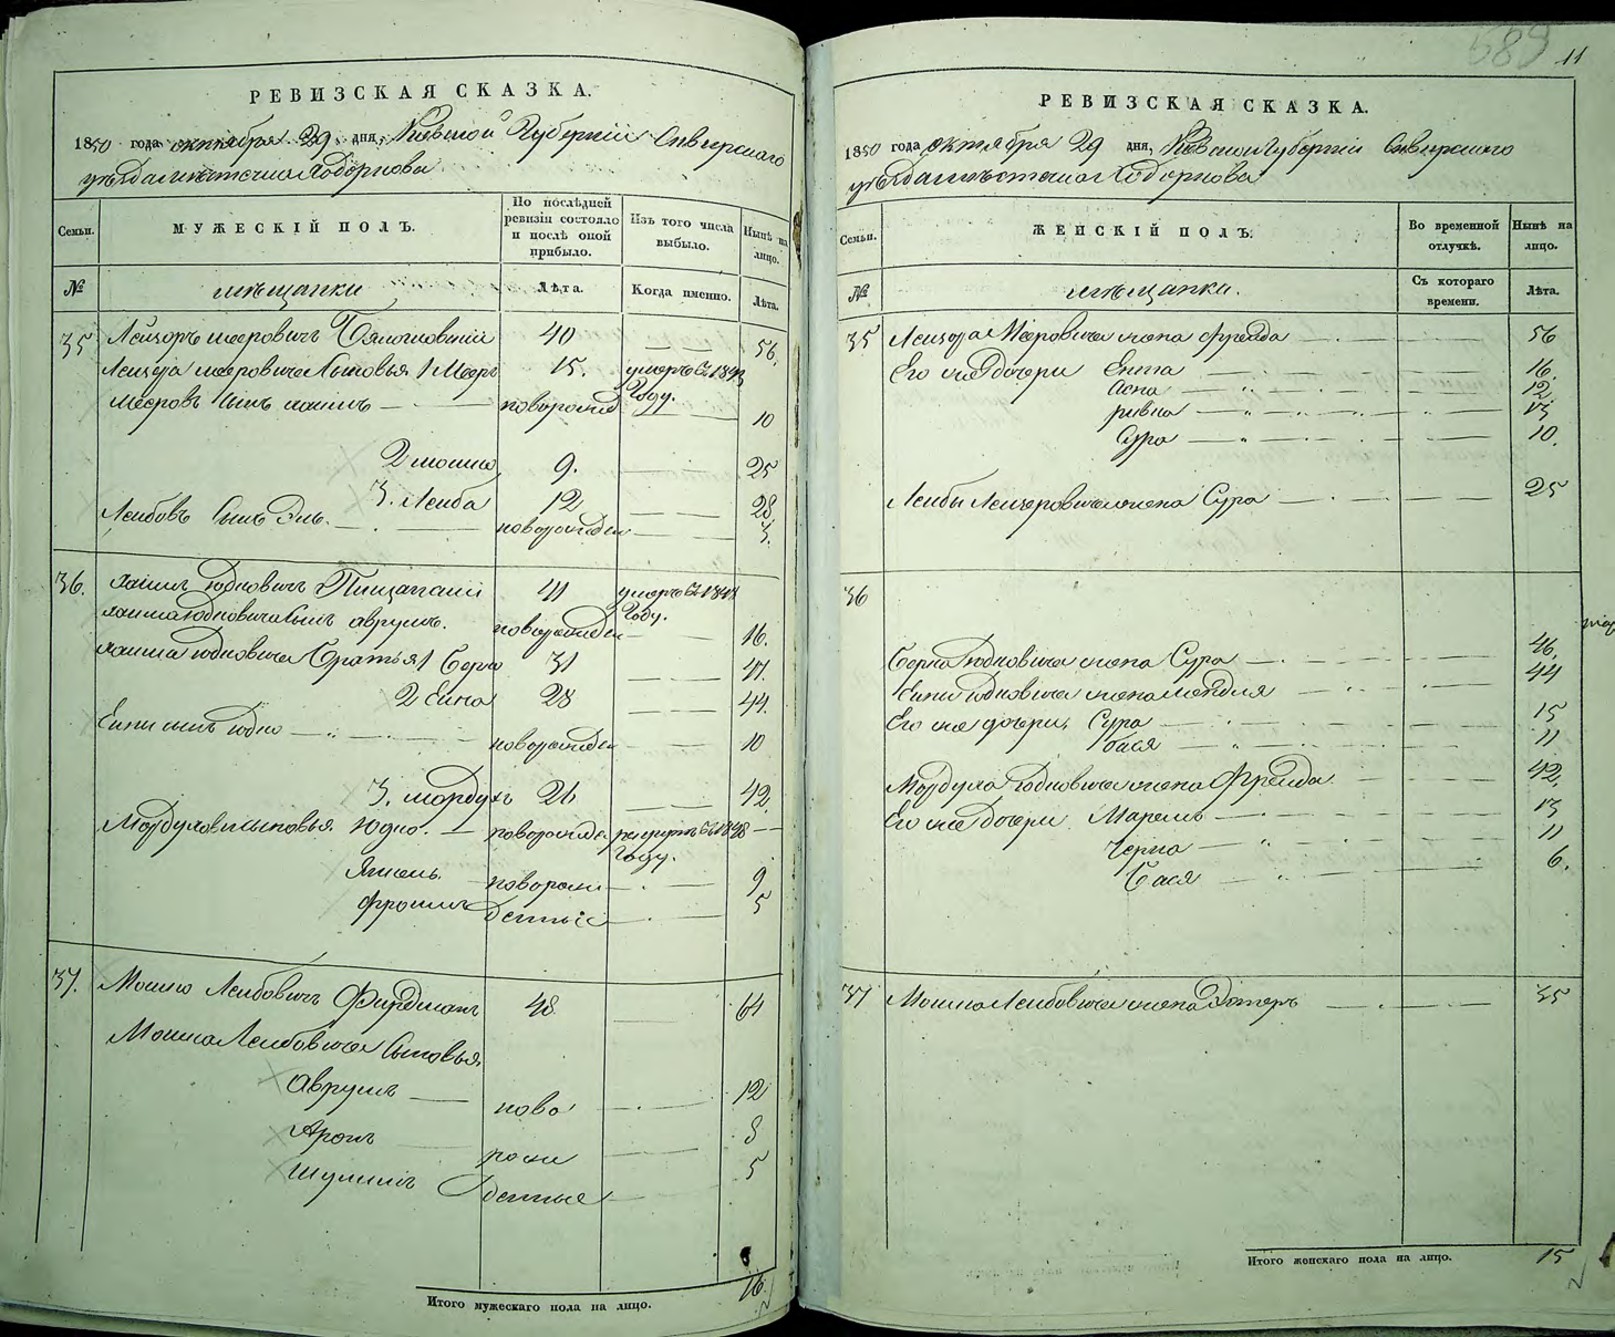 РЕВИЗСКАЯ СКАЗКА.
1850 года октября 29 дня, Киевской Губернiи Сквирскаго
уѣзда мѣстечка Ходоркова
Семьи.
МУЖЕСКІЙ ПОЛЪ.
По послѣдней ревизіи состояло и послѣ оной прибыло.
Изъ того числа выбыло.
Нынѣ на лицо.
№
мѣщанки
Лѣта.
Когда именно.
Лѣта.
35 Лейзоръ Мееровичъ 40 56.
Лейзора Мееровича сыновья 1 Меер 15. умеръ въ 184
Году.
Мееровъ сынъ хаимъ новорожд 10
2 мошко 9. 25
3. Лейба 12 28
Лейбовъ сынъ Эль. новорожден 3.
36. хаимъ Юдковичъ 41 умеръ въ 184
Году.
хаима Юдковича сынъ аврумъ. новорожден 16.
хаима Юдковича братья 1 Берко 31 47.
2 Ейна 28 44.
Ейны сынъ Юдко новорожден 10
3. мордухъ 26 42.
Мордуховы сыновья. Юдко. новорожде въ 1848
Году.
Янкель новорож 9
фроимъ денные 5
37. Мошко Лейбовичъ Фирдманъ 48 64
Мошка Лейбовича сыновья.
Аврумъ ново 12
Аронъ рож 8
Шулимъ денные 5
Итого мужескаго пола на лицо. 16
589
11
РЕВИЗСКАЯ СКАЗКА.
1850 года октября 29 дня, Киевской Губернiи Сквирскаго
уѣзда мѣстечка Ходоркова
Семьи.
ЖЕНСКІЙ ПОЛЪ.
Во временной отлучкѣ.
Нынѣ на лицо.
№
мѣщанки.
Съ котораго времени.
Лѣта.
35 Лейзора Мееровича жена Фрейда 56
Его же дочери Ента 16.
Асна 12
ривка 13
Сура 10.
Лейбы Лейзеровича жена Сура 25
36
Берка Юдковича жена Сура 46.
Ейны Юдковича жена 44
Его же дочери, Сура 15
бася 11
Мордуха Юдковича жена Фрейда 42.
Его же дочери Маремъ 13
Черна 11
Бася 6.
37 Мошка Лейбовича жена Эстеръ 35
Итого женскаго пола на лицо. 15